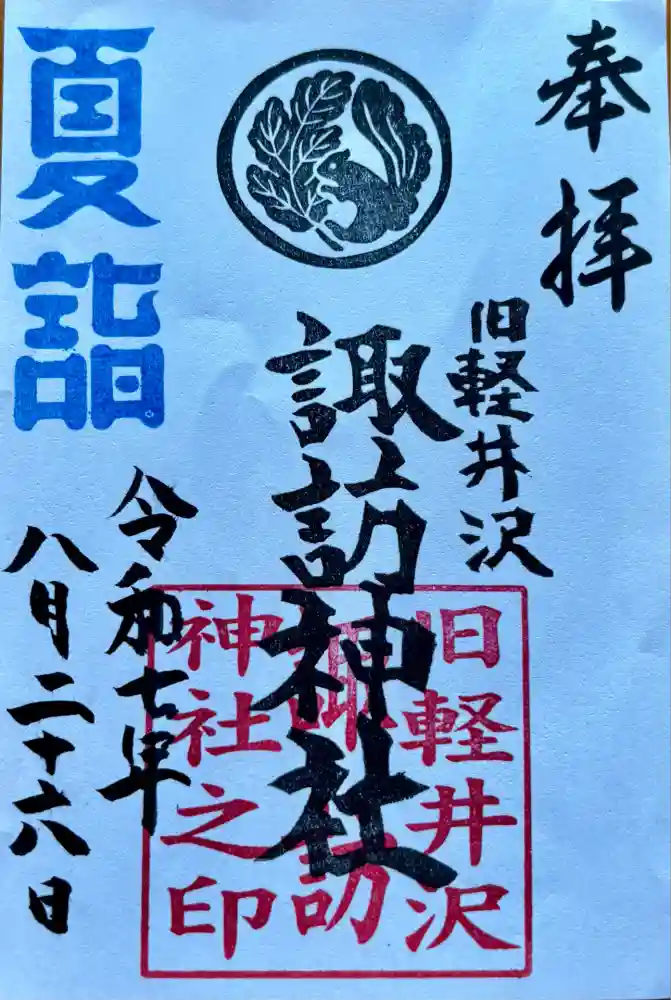 奉拝
旧軽井沢
諏訪神社
旧軽井沢
諏訪
神社之印
令和七年
八月二十六日
夏詣